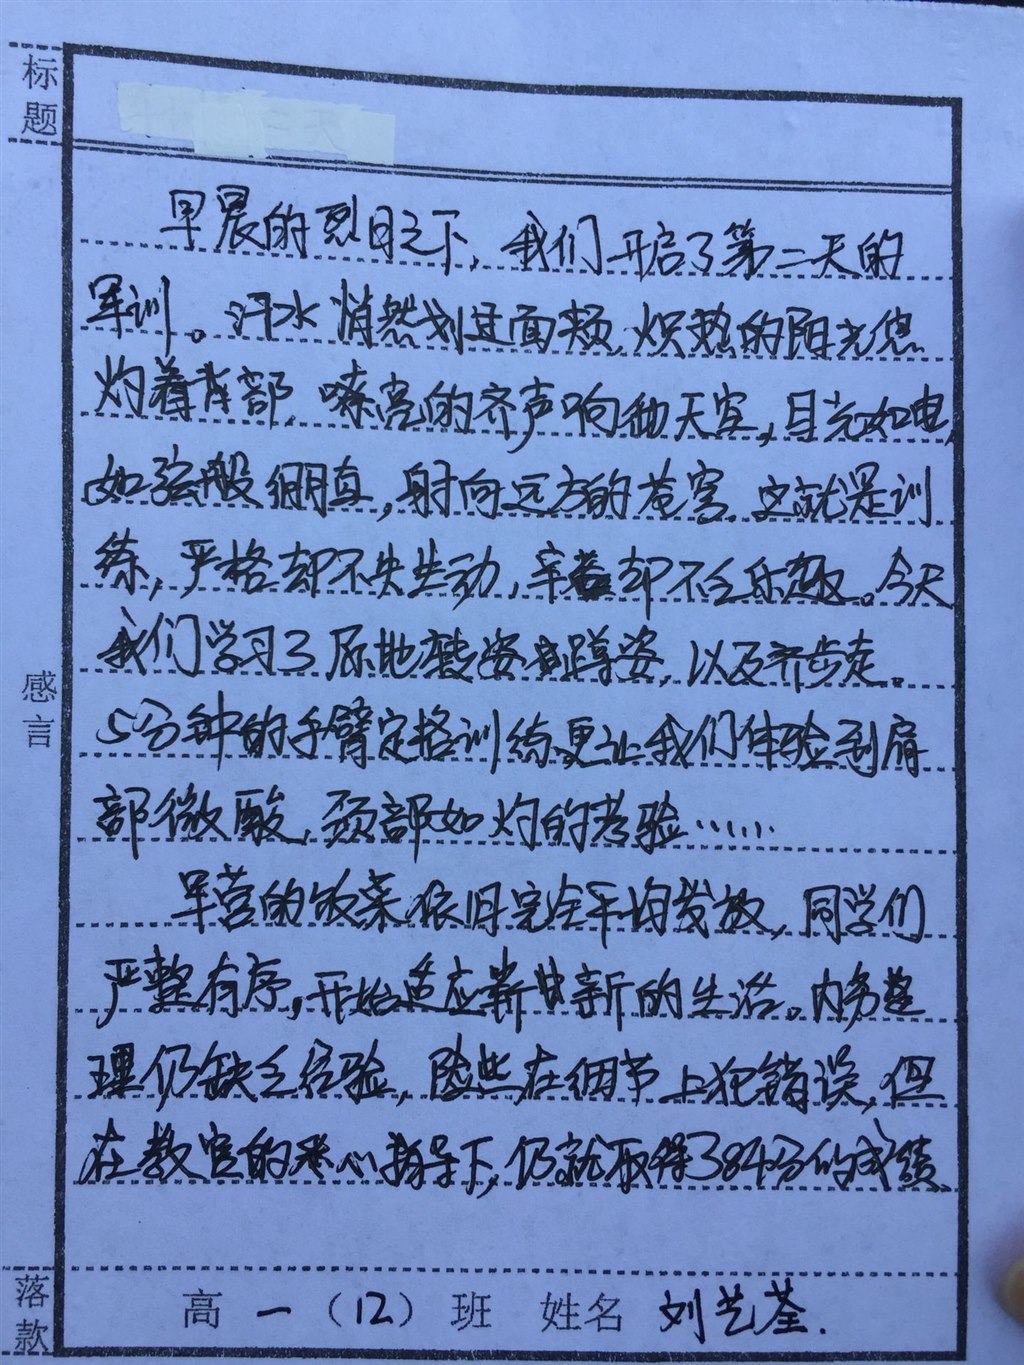 标题
早晨的烈日之下，我们开启了第二天的
军训。汗水悄然划过面颊，炽热的阳光倦
灼着背部，嘹亮的齐声响彻天宇，目光如电，
如弦般绷直，射向远方的苍穹。这就是训
练，严格却不失生动，辛苦却不乏乐趣。今天
我们学习了原地转姿和蹲姿，以及齐步走。
5分钟的手臂定格训练更让我们体验到肩
部微酸，颈部如灼的考验……
军营的饭菜依旧完全平均发放，同学们
严整有序，开始适应崭新的生活。内务整
理仍缺乏经验，险些在细节上犯错误，但
在教官的悉心指导下，仍就取得了384分的成绩。
感言
落款
高一（12）班 姓名 刘艺荃.